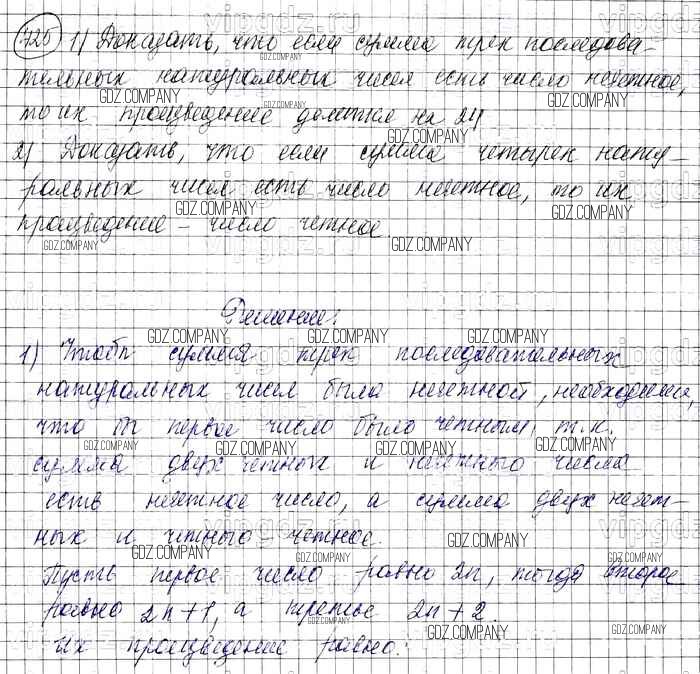 725 1) Доказать, что если сумма трех последова-
тельных натуральных чисел есть число нечетное,
то их произведение делится на 24
2) Доказать, что если сумма четырех нату-
ральных чисел есть число нечетное, то их
произведение – число четное.
Решение:
1) Чтобы сумма трех последовательных
натуральных чисел была нечетной, необходимо,
что бы первое число было четным, т.к.
сумма двух четных и нечетного числа
есть нечетное число, а сумма двух нечет-
ных и четного четное.
Пусть первое число равно 2n, тогда второе
равно 2n+1, а третье 2n+2.
Их произведение равно: